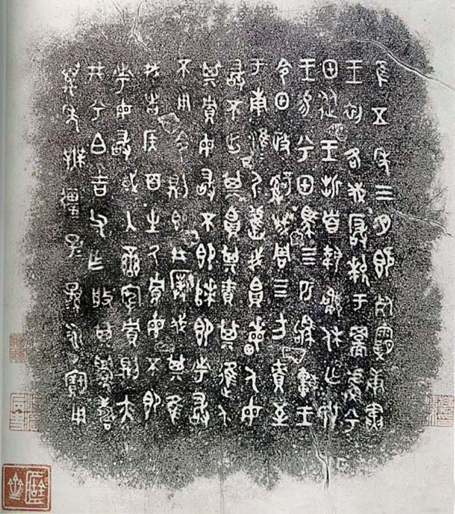 隹五年三月既死霸庚寅
王初各伐于兮
甲從王折首執訊休亡敃
王易兮甲馬四匹駒車王
令甲政𤔲成周四方責至
于南淮尸舊我帛畮人毋
敢不出其帛其責其進人
其貯毋敢不即次即市敢
不用令則即井撲伐其隹
我者侯百生厥貯毋不即
市毋敢或入蠻宄貯則亦
井兮白吉父乍般其眉壽
萬年無疆子子孫孫永寶用